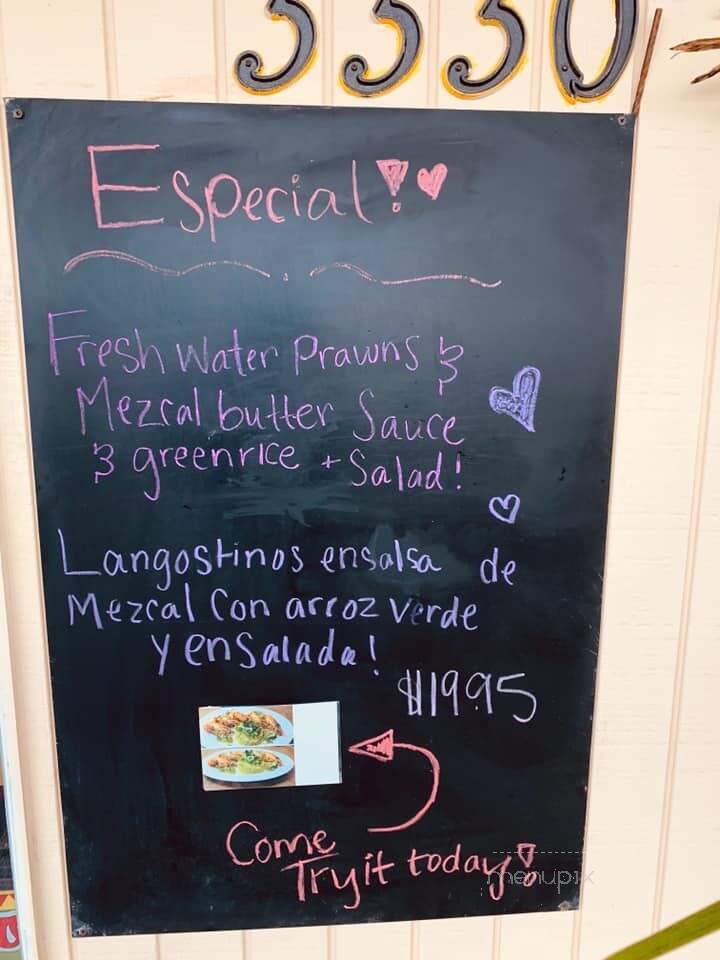 3330
Especial!
Fresh Water Prawns &
Mezcal butter Sauce
& greenrice + Salad!
Langostinos ensalsa de
Mezcal Con arroz verde
y enSalada!
$19.95
Come
Try it today!
menupix